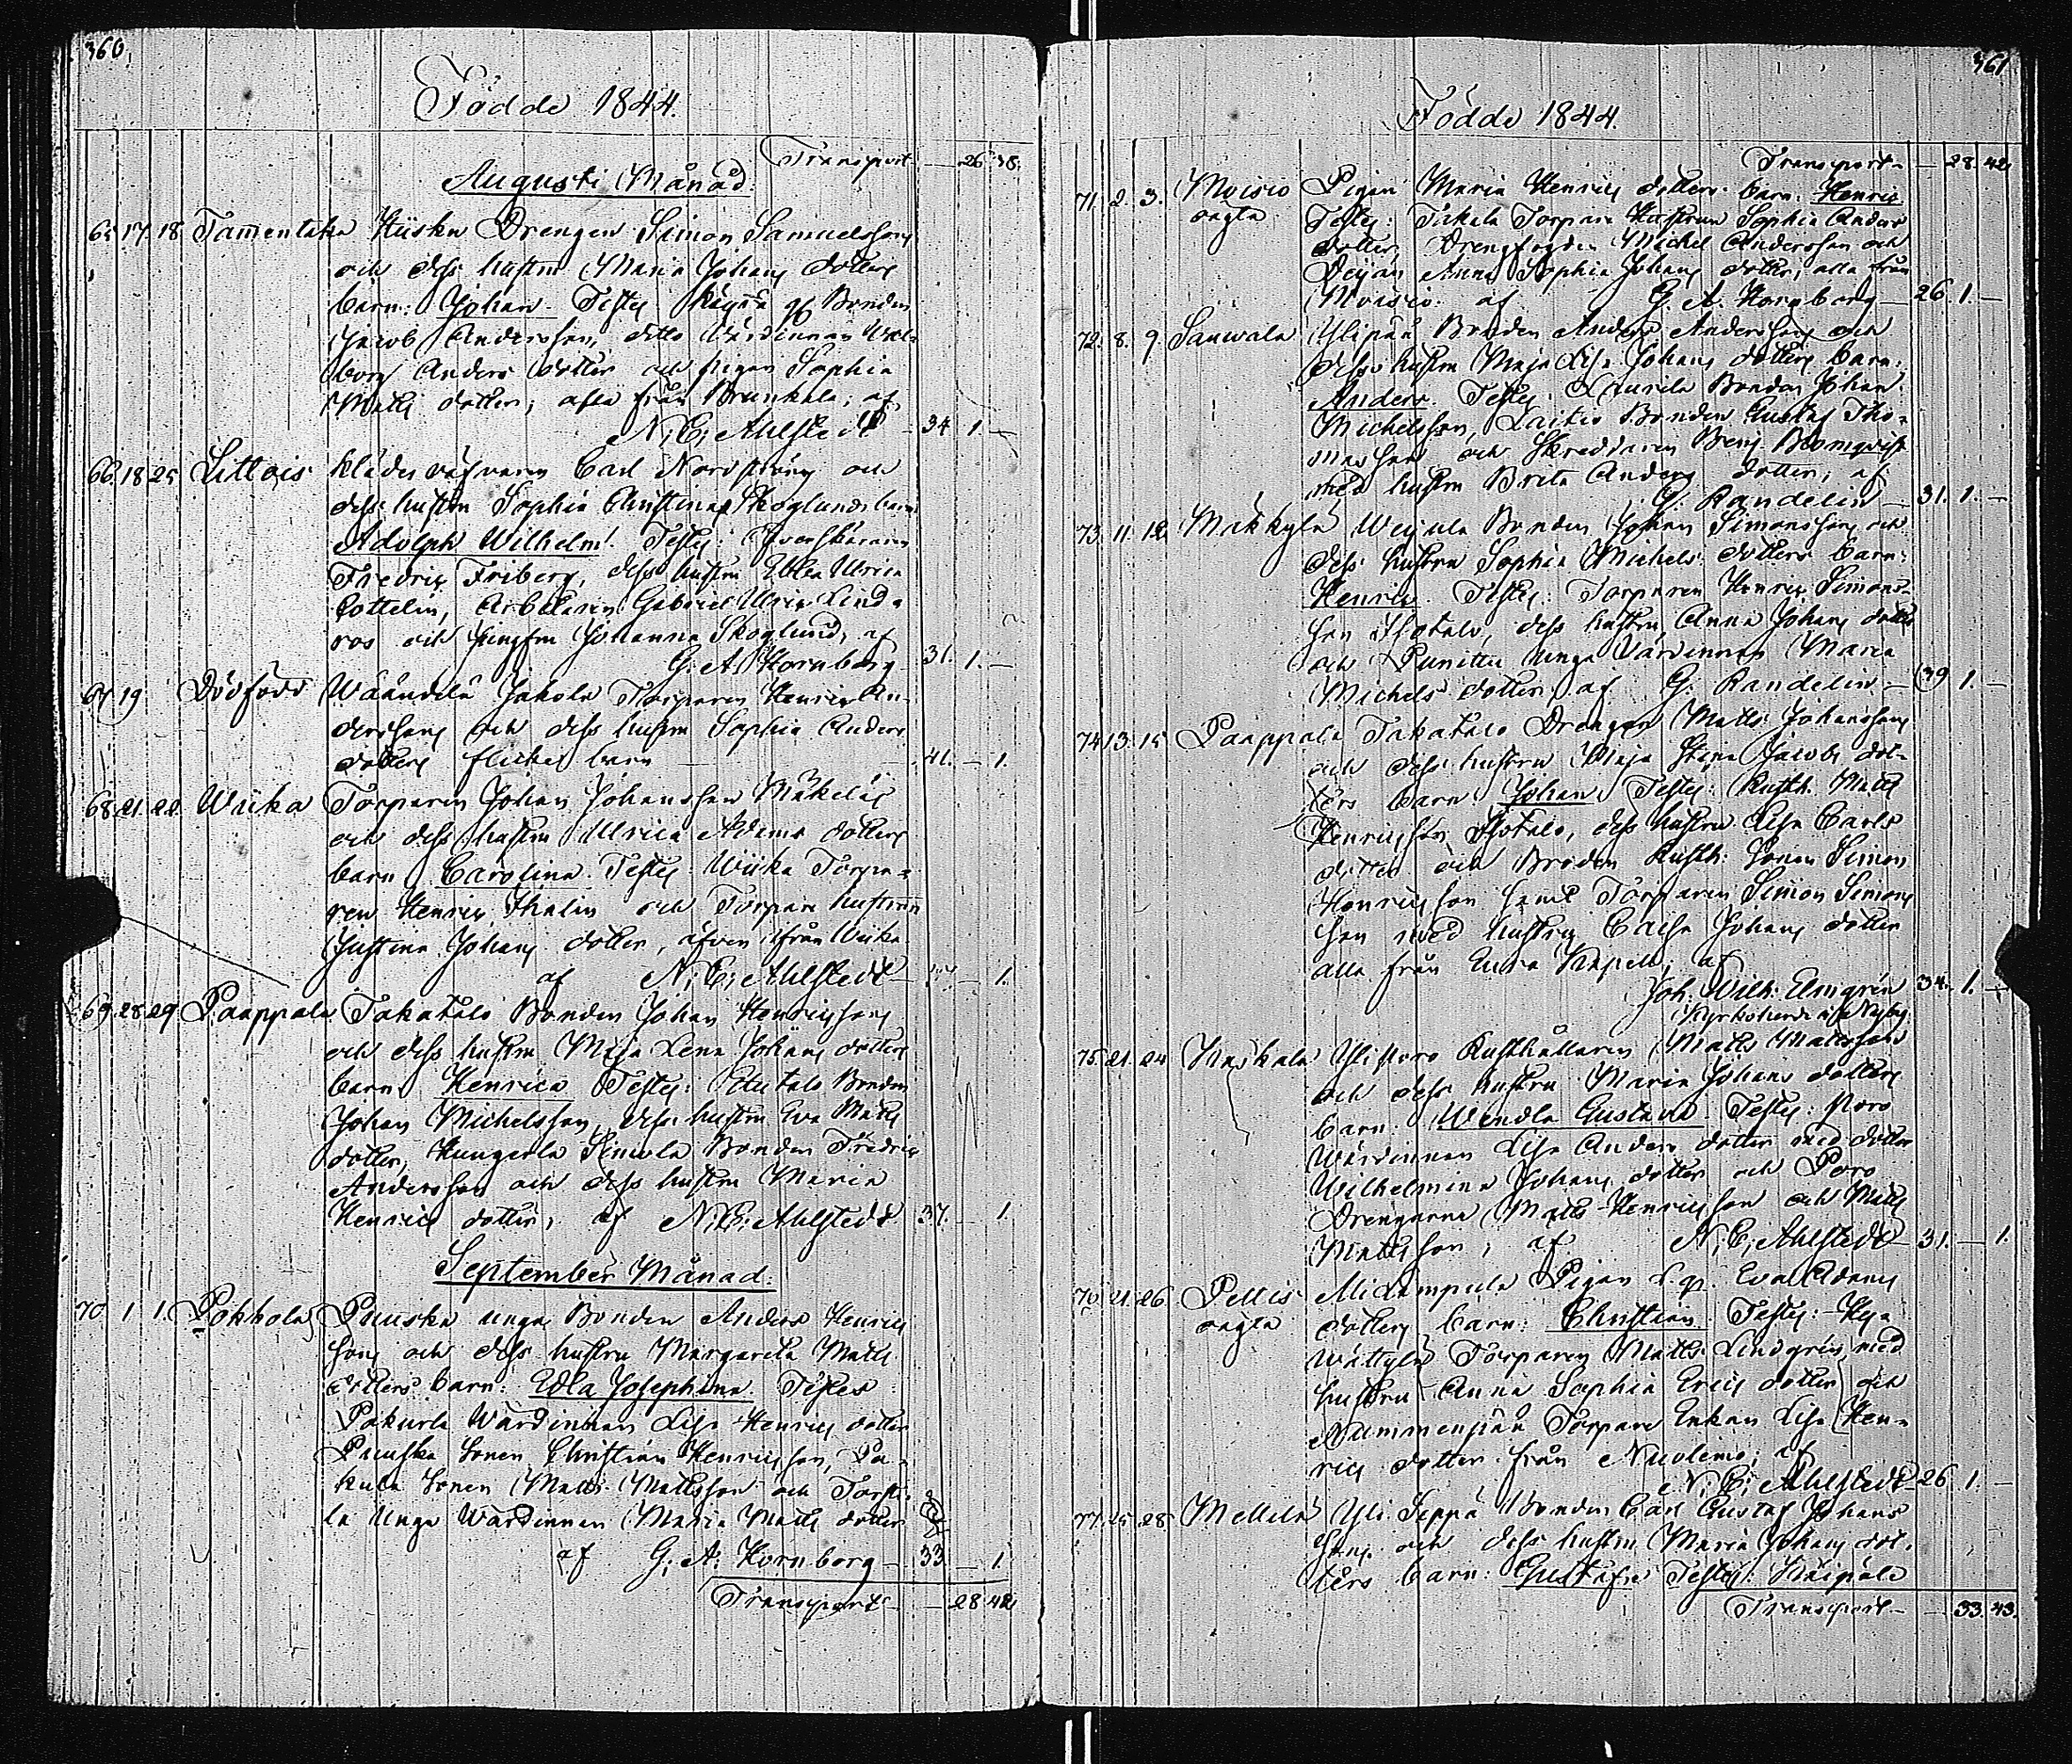 360.
Födde 1844.
Transport — 26. 38.
Augusti Månad.
65. 17. 18. Tammentaka Hiisku Drengen Simon Samuelssons
och dess hustru Maria Johans dotters
barn: Johan. Testes Bonden
Jacob Andersson, ditto Värdinnan Wal-
borg Anders dotter och pigan Sophia
Matts dotter; alla från Brunkala; af
N. E. Ahlstedt — 34. 1. —
66. 18. 25. Littois Klädesväfvaren Carl Nordström och
dess hustru Sophia Christina Skoglunds barn
Adolph Wilhelm. Testes: Öfverskäraren
Fredric Friberg, dess hustru Ebba Ulrica
Cottelin, Arbetaren Gabriel Ulric Lind-
ros och Jungfru Johanna Skoglund, af
G. A. Hornborg — 31. 1. —
67. 19. Dödfödd Wäänelä Jakola Torparen Henric An-
derssons och dess hustru Sophia Anders
dotters flicke barn — 41. — 1.
68. 21. 22. Wiika Torparen Johan Johansson Mäkeläs
och dess hustru Ulrica Adams dotters
barn Carolina. Testes: Wiika Torpa-
ren Henric Thalin och Torpare hustrun
Justina Johans dotter, äfven ifrån Wiika
af N. E. Ahlstedt — — 1.
69. 28. 29. Paappala Takatalo Bonden Johan Henricssons
och dess hustru Maja Lena Johans dotters
barn Henrica Testes: Etutalo Bonden
Johan Michelsson, dess hustru Eva Matts
dotter, Simola Bonden Fredric
Andersson och dess hustru Maria
Henrics dotter, af N. E. Ahlstedt 37. — 1.
September Månad.
70. 1. 1. Pokkola Puuska unga Bonden Anders Henrics
sons och dess hustru Margareta Matts
dotters barn: Edla Josephina. Testes:
Pakurla Wärdinnan Lisa Henrics dotter
Puuska Sonen Christian Henricsson, Pa-
kula Sonen Matts Mattsson och Torpi-
la Unga Wärdinnan Maria Matts dotter
af G. A. Hornborg — 33 — 1
Transport — — 28 42
361
Födde 1844.
Transport — — 28. 42
71. 2. 3. Moisio Pigan Maria Henrics dotters barn: Henric
oagta Testes: Torpare Hustrun Sophia Anders
dotter, Drengfogden Michel Andersson och
Deijan Anna Sophia Johans dotter; alla från
Moisio. af G. A. Hornborg — 26. 1. —
72. 8. 9. Sauwala Ylipää Bonden Anders Anderssons och
dess hustru Maja Lisa Johans dotters barn:
Anders. Testes: Laurila Bonden Johan
Michelsson, Laitio Bonden Gustaf Tho-
masson och Skreddaren Benj. Blomqvist
med hustru Brita Anders dotter; af
G. Randelin — 31. 1. —
73. 11. 12. Mäkkylä Weijula Bonden Johan Simonssons och
dess hustru Sophia Michels dotters barn:
Henric. Testes: Torparen Henric Simons-
son Isotalo, dess hustru Anna Johans dotter
och Punittu Unga Värdinnan Maria
Michels dotter. af G. Randelin — 39 1. —
74. 13. 15. Paappala Takatalo Drengen Matts Johanssons
och dess hustru Maja Stina Jacobs dot-
ters barn Johan. Testes: Rusth. Matts
Henricsson Isotalo, dess hustru Lisa Carls
dotter och Brodren Rusth. Sonen Simon
Henricsson samt Torparen Simon Simons
son med hustru Caisa Johans dotter
alla från Eura Kapell; af
Joh. Wilh. Elmgrén 34. 1. —
Kyrkoherde i Nykg.
75. 21. 24. Kaskala Ylisporo Rusthållaren Matts Mattssons
och dess hustru Maria Johans dotters
barn: Wendla Gustava. Testes: Poro
Wärdinnan Lisa Anders dotter med dotter
Wilhelmina Johans dotter och Poro
Drengarne Matts Henricsson och Matts
Mattsson; af N. E. Ahlstedt — 31. — 1.
76. 21. 26. Pellis Pigan Eva Adams
oagta dotters barn: Christian. Testes:
Torparen Matts Lindgrén med
hustru Anna Sophia Erics dotter och
Nummenpää Torpare Enkan Lisa Hen-
rics dotter från Nuolemo; af
N. E. Ahlstedt — 26. 1. —
77. 25. 28. Mellilä Yli Seppä Bonden Carl Gustaf Johans
sons och dess hustru Maria Johans dot-
ters barn: Gustafva Testes:
Transport — — 33. 43.